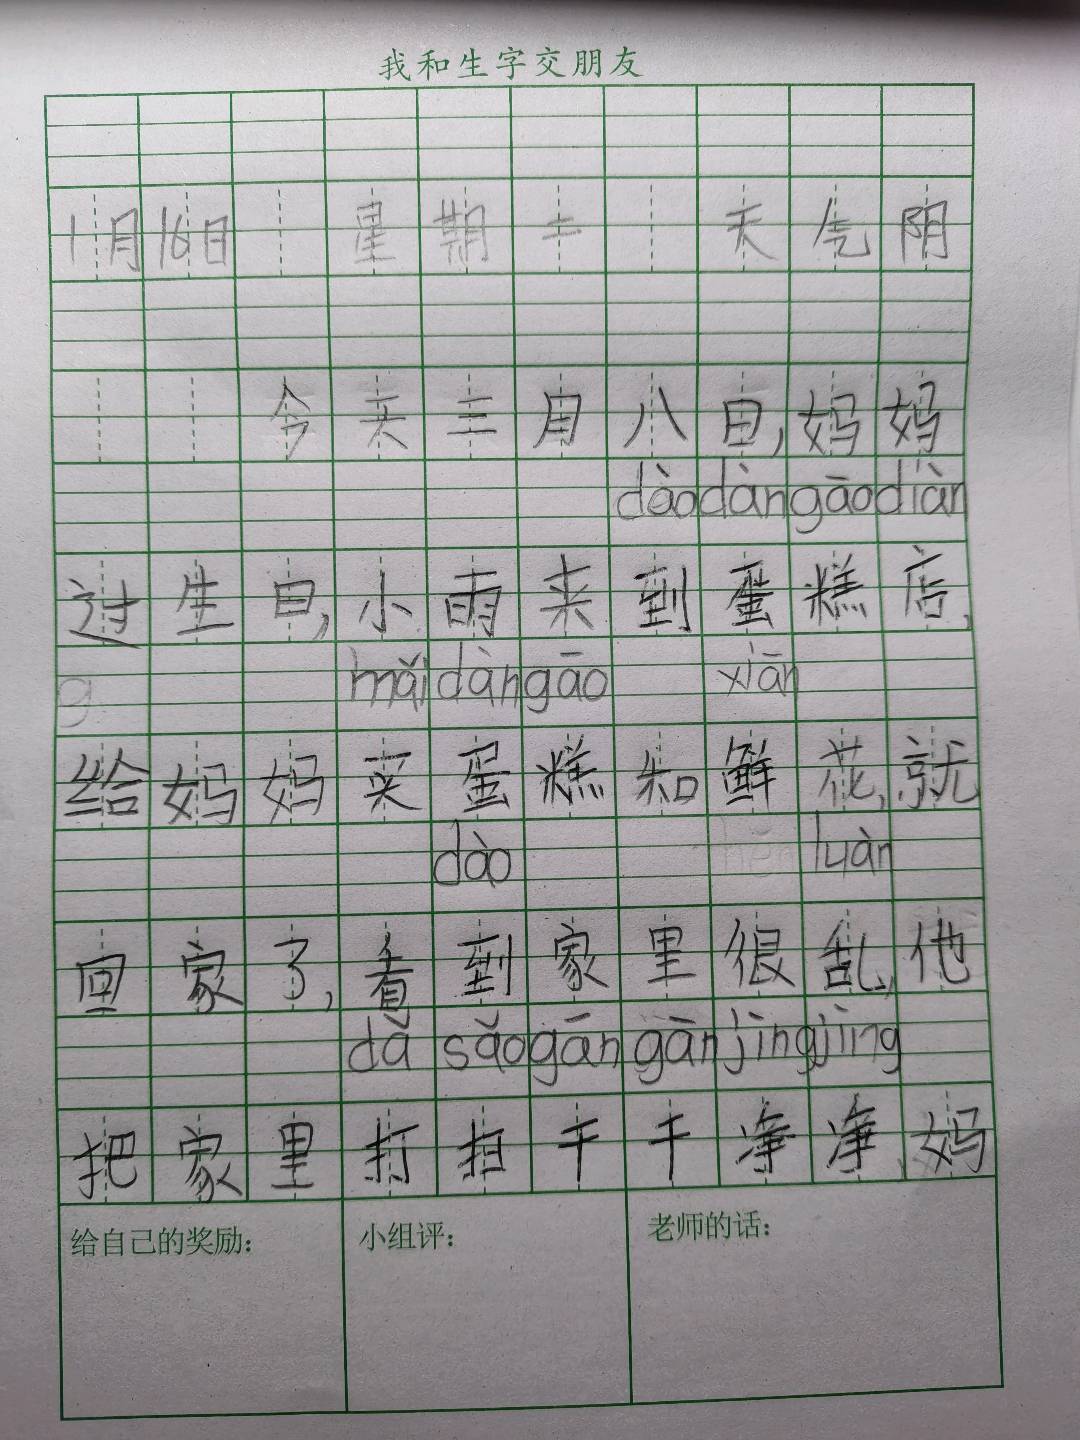 我和生字交朋友
1月16日 星期二 天气阴
今天三月八日,妈妈
dào dàn gāo diàn
过生日,小雨来到蛋糕店,
mǎi dàn gāo xiān
给妈妈买蛋糕和鲜花,就
dào luàn
回家了,看到家里很乱,他
dǎ sǎo gān gàn jìng jìng
把家里打扫干干净净,妈
给自己的奖励: 小组评: 老师的话: